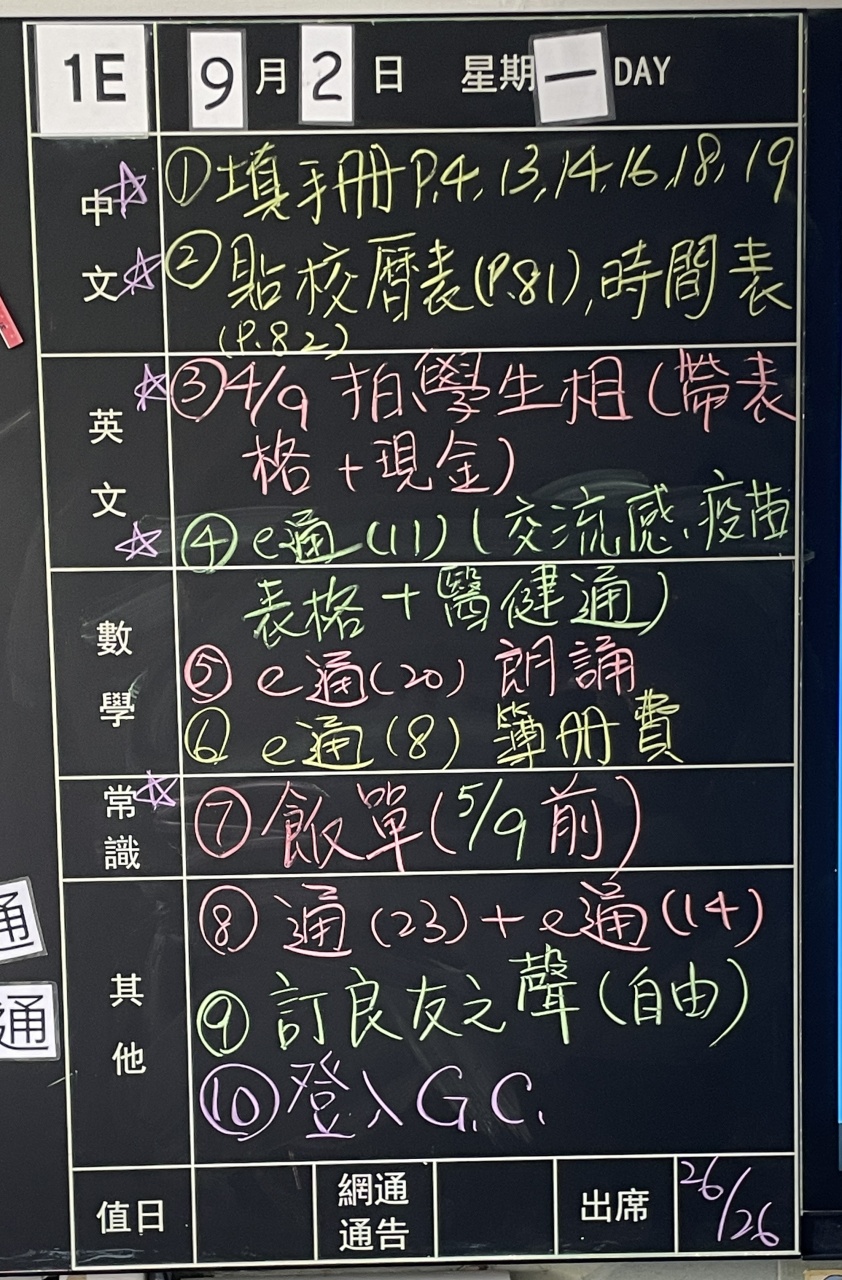 1E 9月2日 星期一DAY
中文
①填手冊P.4, 13, 14, 16, 18, 19
②貼校曆表(P.81),時間表
(P.82)
英文
③4/9 拍學生相(帶表
格+現金)
④e通(11)(交流感、疫苗
數學
表格+醫健通)
⑤e通(20)朗誦
⑥e通(8)簿冊費
常識
⑦飯單(5/9前)
其他
⑧通(23)+e通(14)
⑨訂良友之聲(自由)
⑩登入G.C.
值日
網通
通告
出席 26/26
通
通